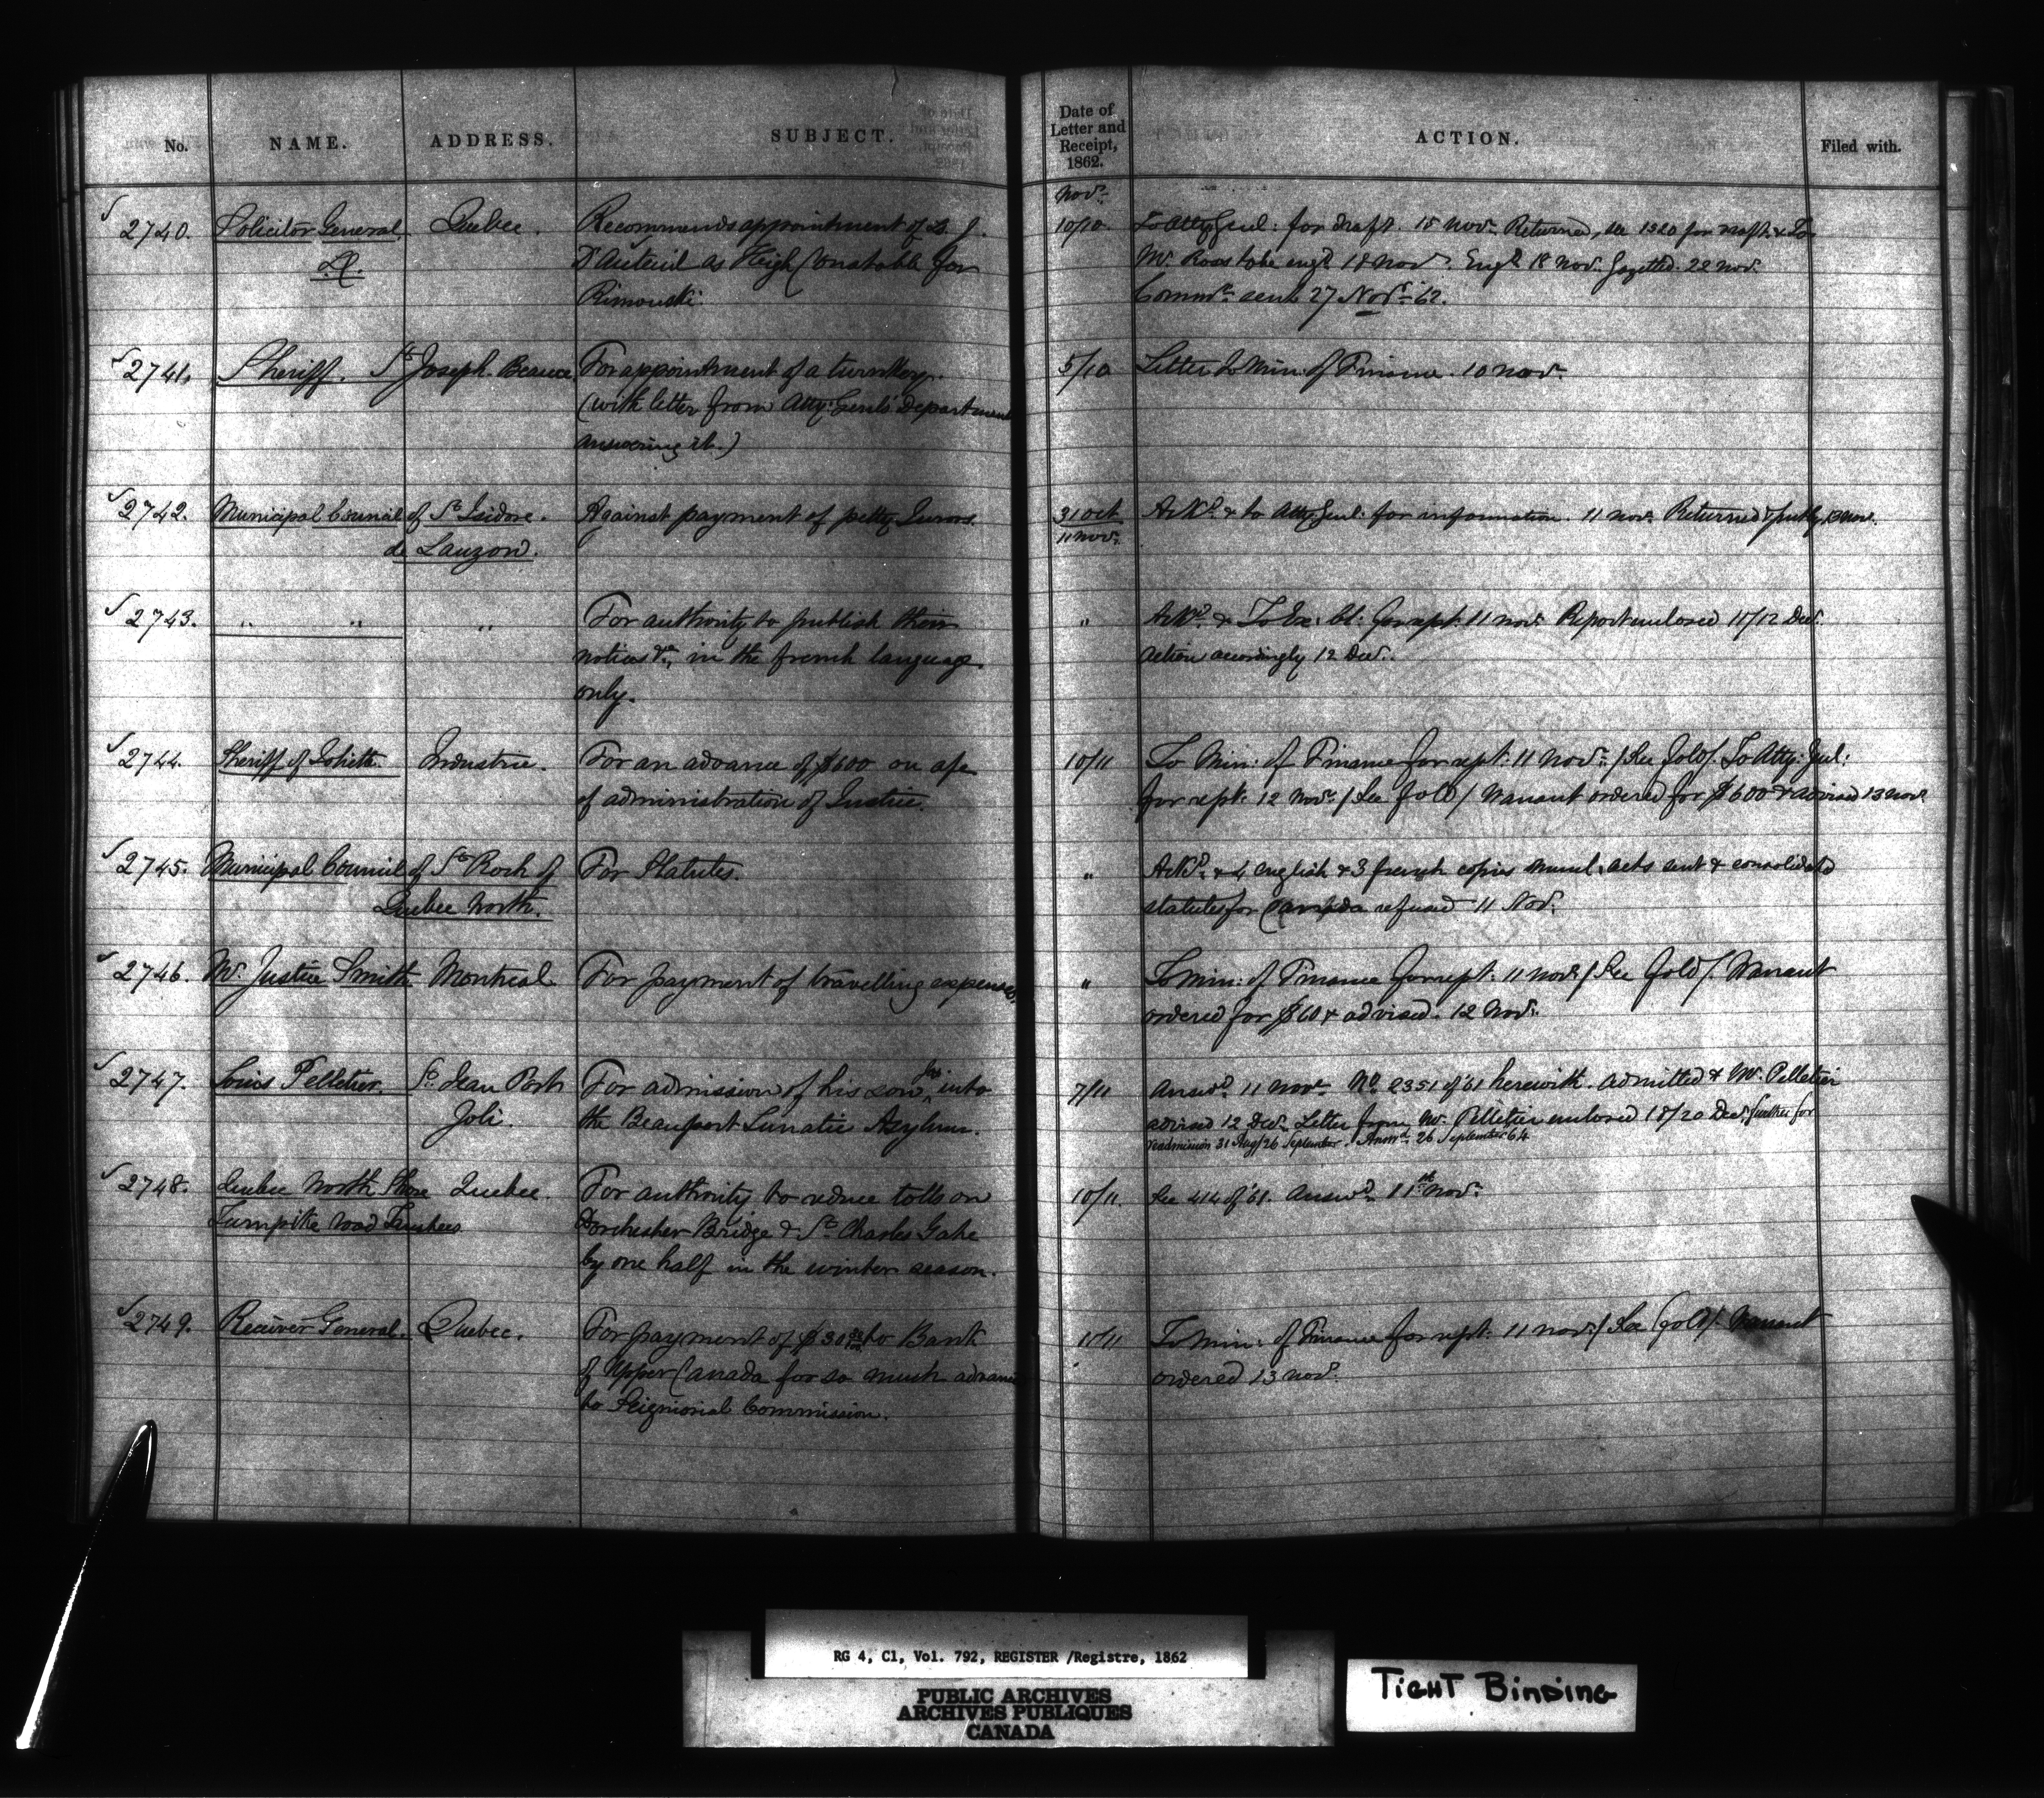 No. NAME. ADDRESS. SUBJECT. Date of Letter and Receipt, 1862. ACTION. Filed with.
Novr.
2740. Solicitor General Quebec. Recommends appointment of J. 10/10. To Atty Genl: for draft. 15 Novr. Returned, see 1320 for draft & To
D'Auteuil as High Constable for Mr. Ross to be engd 18 Novr. Engd 18 Nov. Gazetted. 22 Novr.
Rimouski. Commn. sent 27 Novr. 62.
2741. Sheriff. St. Joseph. Beauce For appointment of a turnkey. 5/10 Letter to Min: of Finance. 10 Novr.
(with letter from Atty: Genl's Department
answering it.)
2742. Municipal Council of St. Isidore. Against payment of petty Jurors. 31 Oct Ackd. & to Atty Genl: for information. 11 Novr. Returned 13 Novr.
de Lauzon. 11 Novr.
2743. " " " For authority to publish their " Ackd. & To Ex: Cl: for rept: 11 Novr. Report enclosed 11/12 Decr.
notices &c, in the french language Action accordingly 12 Decr.
only.
2744. Sheriff of Joliette. Industrie. For an advance of $600 on a/c 10/11 To Min: of Finance for rept: 11 Novr. / See fold /. To Atty: Genl:
of administration of Justice. for rept: 12 Novr. / See fold / Warrant ordered for $600 & advised 13 Novr.
2745. Municipal Council of St. Roch of For Statutes. " Ackd. & 4 english & 3 french copies Munl. acts sent & consolidated
Quebec North. statutes for Canada refused 11 Nov.
2746. Mr. Justice Smith. Montreal For payment of travelling expenses. " To Min: of Finance for rept: 11 Novr. / See fold /. Warrant
ordered for $60 & advised. 12 Novr.
2747. Louis Pelletier. St. Jean Port For admission of his son into 7/11 Answd. 11 Novr. No. 2351 of 61 herewith. Admitted & Mr. Pelletier
Joli. the Beauport Lunatic Asylum. advised 12 Decr. Letter from Mr. Pelletier enclosed 18/20 Decr. further for
readmission 31 Aug/26 September. Answd. 26 September 64
2748. Quebec North Shore Quebec. For authority to reduce tolls on 10/11. See 414 of 61. Answd. 11th Novr.
Turnpike Road Trustees Dorchester Bridge & St. Charles Gate
by one half in the winter season.
2749. Receiver General. Quebec. For payment of $30 to Bank 11/11 To Min: of Finance for rept: 11 Novr. / See fold /. Warrant
of Upper Canada for so much advance ordered 13 Novr.
to Seigniorial Commission.
RG 4, C1, Vol. 792, REGISTER /Registre, 1862
PUBLIC ARCHIVES
ARCHIVES PUBLIQUES
CANADA
TIGHT BINDING